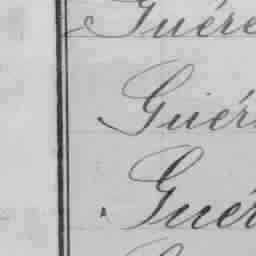 Guére
Guér
Guér